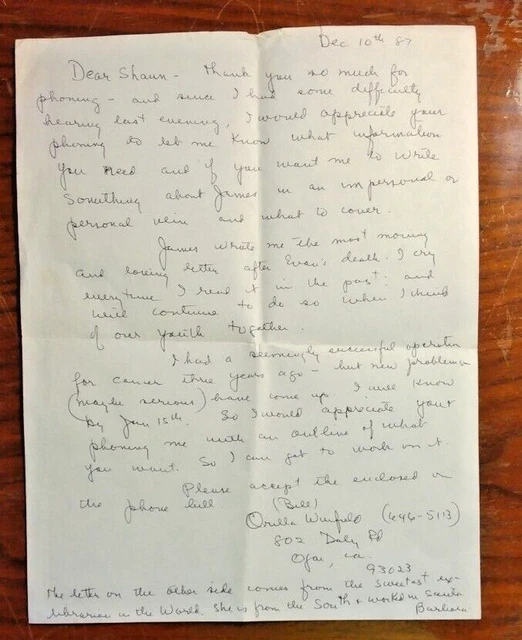 Dec 10th 87
Dear Shaun - Thank you so much for
phoning - and since I had some difficulty
hearing last evening, I would appreciate your
phoning to let me know what information
you need and if you want me to write
something about James in an impersonal or
personal vein and what to cover.
James wrote me the most moving
and loving letter after Evan's death. I cry
everytime I read it in the past: and
will continue to do so when I think
of our youth together.
I had a seemingly successful operation
for cancer three years ago - but new problems
(maybe serious) have come up. I will know
by Jan 15th. So I would appreciate your
phoning me with an outline of what
you want. So I can get to work on it.
Please accept the enclosed on
the phone bill
(Bill)
Orilla Winfield (646-5113)
802 Daly Rd
Ojai, Ca.
93023
The letter on the other side comes from the sweetest ex-
librarian in the World. She is from the South & worked in Santa
Barbara